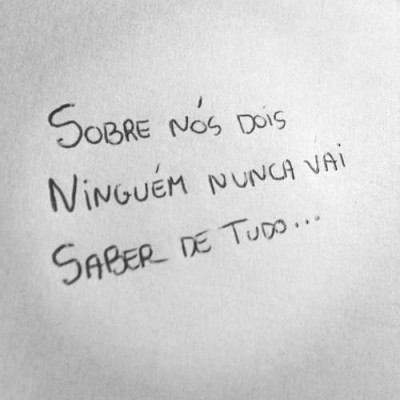 SOBRE NÓS DOIS
NINGUÉM NUNCA VAI
SABER DE TUDO...